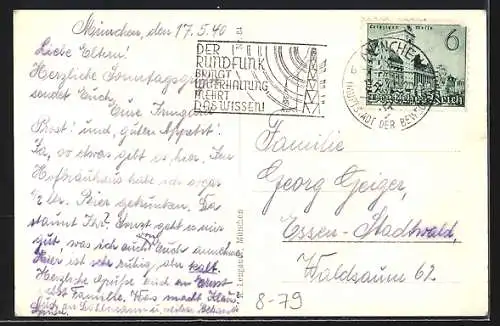 München, den 17.5.40
Liebe Eltern!
Herzliche Sonntagsgrüße
sendet Euch
Eure Irmgard
Prost! und guten Appetit!
Ja, so etwas gibt es hier. Im
Hofbräuhaus habe ich sogar
1/2 ltr. Bier getrunken. Da
staunt Ihr? Sonst geht es mir
gut, was ich auch von Euch annehme.
Hier ist sehr ruhig, aber kalt.
Herzliche Grüße sind an Ernst
nebst Familie. Was macht Klaus
DER
RUNDFUNK
BRINGT
UNTERHALTUNG
MEHRT
DAS WISSEN!
Leipziger Messe
6
Reich
MÜNCHEN
HAUPTSTADT DER BEWEG
München
Familie
Georg Geiger,
Essen-Stadtwald,
Waldsaum 62.
8-79